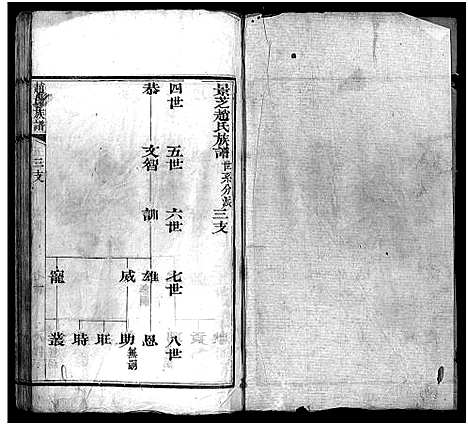 景芝趙氏族譜世系分支三支
四世 五世 六世 七世 八世
恭 文智 訓 雄 恩
威 助無嗣
旺
時
寵 叢
趙氏族譜 三支